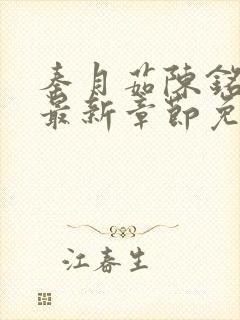 秦月茹陳銘
最新章節免
江春生